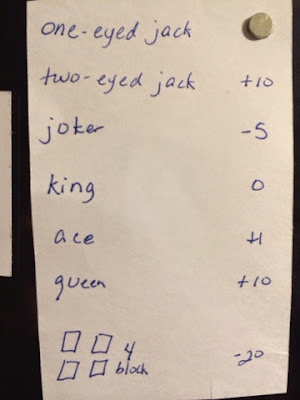 one-eyed jack
two-eyed jack +10
joker -5
king 0
ace +1
queen +10
4
block -20